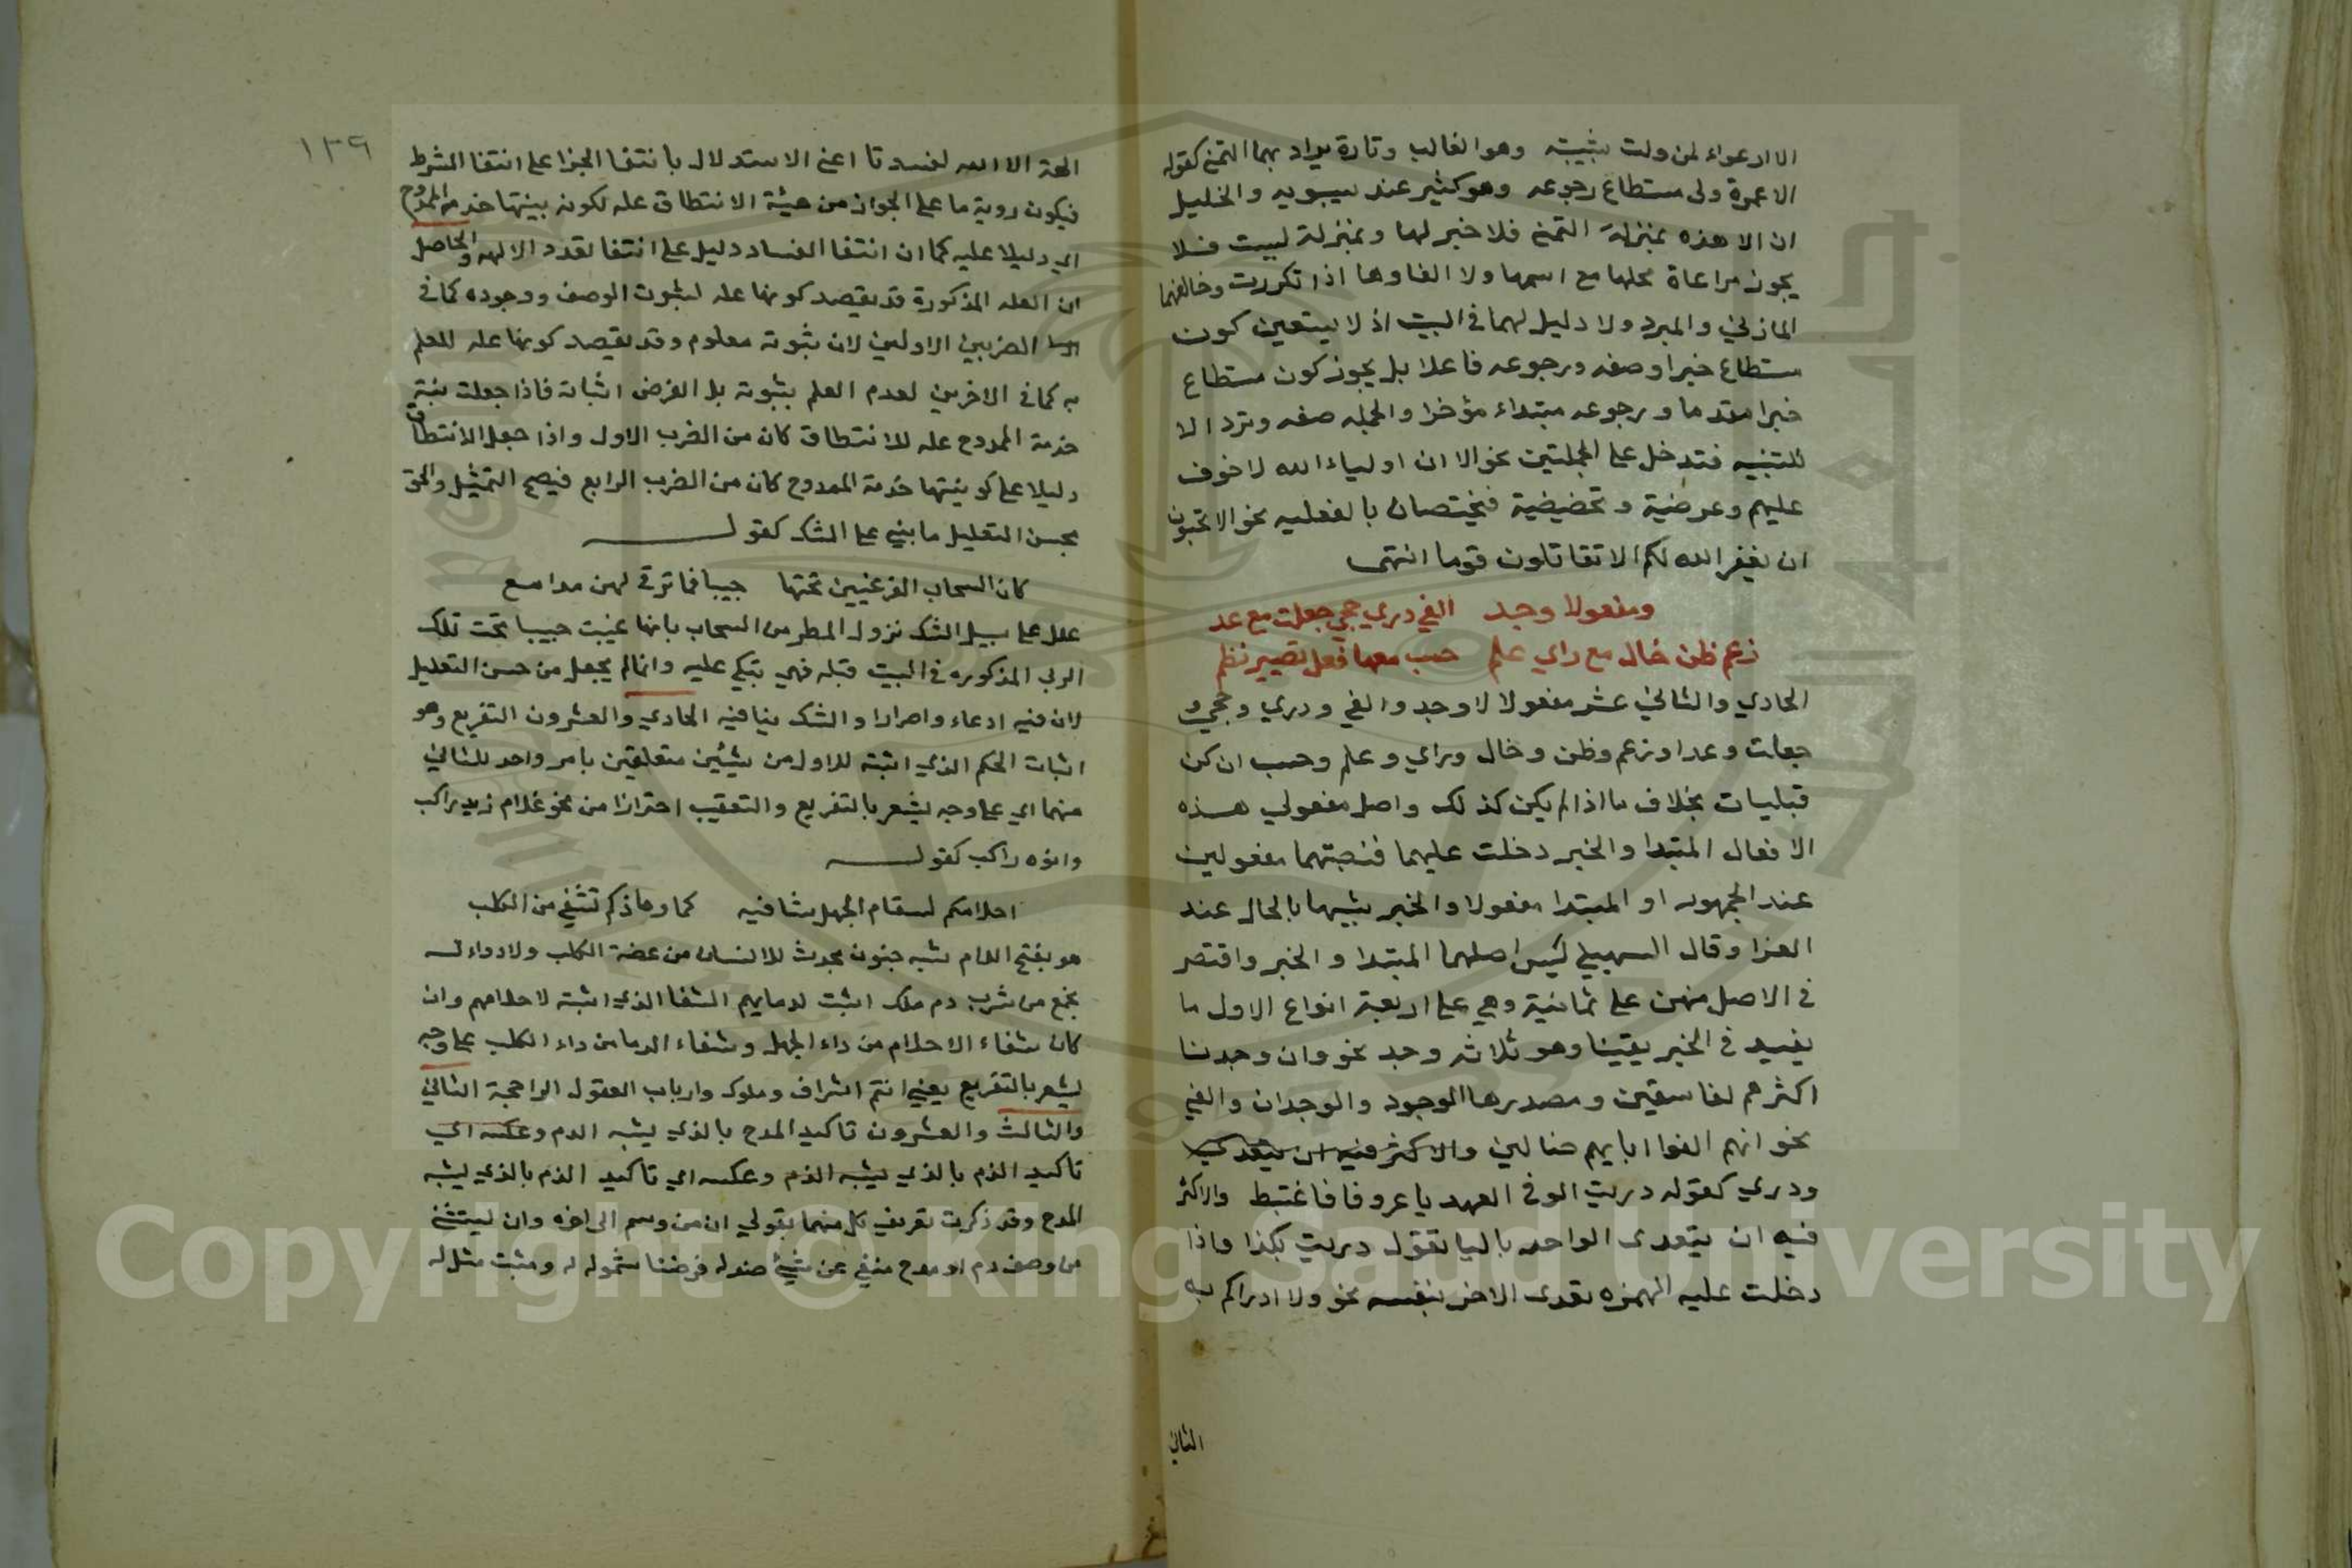 الا ارعواء لمن ولت شبيبته وهو الغالب وتارة يراد بهما التمني كقوله
الا عمرة ولى مستطاع رجوعه وهو كثير عند سيبويه والخليل
ان الا هذه بمنزلة التمني فلا خبر لها وبمنزلة ليت فلا
يجوز مراعاة محلها مع اسمها ولا الغاوها اذا تكررت وخالفهما
المازني والمبرد ولا دليل لهما في البيت اذ لا يتعين كون
مستطاع خبرا او صفه ورجوعه فاعلا بل يجوز كون مستطاع
خبرا مقدما ورجوعه مبتداء مؤخرا والجمله صفه وترد الا
للتنبيه فتدخل على الجملتين نحو الا ان اولياء الله لا خوف
عليهم وعرضية وتحضيضية فيختصان بالفعليه نحو الا تحبون
ان يغفر الله لكم الا تقاتلون قوما انتهى
ومفعولا وجد الفي دري حجي جعلت مع عد
زعم ظن خال مع راي علم حسب معها فعل تصيير نظم
الحادي والثاني عشر مفعولا لاوجد والفي ودري وحجي و
جعلت وعدا وزعم وظن وخال وراي وعلم وحسب ان كن
قبليات بخلاف ما اذا لم يكن كذلك واصل مفعولي هذه
الافعال المبتدا والخبر دخلت عليهما فنصبتهما مفعولين
عند الجمهور او المبتدا مفعولا والخبر شبيها بالحال عند
الفرا وقال السهيلي ليس اصلهما المبتدا والخبر واقتصر
في الاصل منهن على ثمانية وهي على اربعة انواع الاول ما
يفيد في الخبر يقينا وهو ثلاثه وجد نحو وان وجدنا
اكثرهم لفاسقين ومصدرها الوجود والوجدان والفي
نحو انهم الفوا ابايهم ضالين والاكثر فيه ان يتعدى
ودري كقوله دريت الوفي العهد يا عروفا فاغتبط والاكثر
فيه ان يتعدى الواحد باليا تقول دريت بكذا فاذا
دخلت عليه الهمزه تعدى الاخر بنفسه نحو ولا ادراكم به
الثاني
١٣٩
الهة الا الله لفسدتا اعني الاستدلال بانتفا الجزا على انتفا الشرط
فيكون روية ما على الجوزا من هيئة الانتطاق عله لكونه نيتها خدمة الممدوح
اي دليلا عليه كما ان انتفا الفساد دليل على انتفا تعدد الالهه والحاصل
ان العله المذكورة قد يقصد كونها عله لثبوت الوصف ووجوده كما في
الضربين الاولين لان ثبوته معلوم وقد يقصد كونها عله للعلم
به كما في الاخرين لعدم العلم بثبوته بل الغرض اثباته فاذا جعلت نية
خدمة الممدوح عله للانتطاق كان من الضرب الاول واذا جعل الانتطاق
دليلا على كو نيتها خدمة الممدوح كان من الضرب الرابع فيصح التمثيل والحق
بحسن التعليل ما بني على الشك كقوله
كان السحاب الغر غيبين تحتها حبيبا فما ترقي لهن مدامع
علل على سبيل الشك نزول المطر من السحاب بانها غيبت حبيبا تحت تلك
الربي المذكوره في البيت قبله فهي تبكي عليه وانما لم يجعل من حسن التعليل
لان فيه ادعاء واصرارا والشك ينافيه الحادي والعشرون التفريع وهو
اثبات الحكم الذي اثبته للاول من شيئين متعلقين بامر واحد للثاني
منهما اي على وجه يشعر بالتفريع والتعقيب احترازا من نحو غلام زيد راكب
وابوه راكب كقوله
احلامكم لسقام الجهل شافيه كما دماؤكم تشفي من الكلب
هو بفتح اللام شبه جنون يحدث للانسان من عضة الكلب ولا دواء له
نجع من شرب دم ملك اثبت لدمايهم الشفا الذي اثبته لاحلامهم وان
كان شفاء الاحلام من داء الجهل وشفاء الدما من داء الكلب على وجه
يشعر بالتفريع يعني انتم اشراف وملوك وارباب العقول الراجحة الثاني
والثالث والعشرون تاكيد المدح بالذي يشبه الذم وعكسه اي
تاكيد الذم بالذي يشبه الذم وعكسه اي تاكيد الذم بالذي يشبه
المدح وقد ذكرت تعريف كل منهما بقولي ان من وسم الى اخره وان يستثنى
من وصف دم او مدح منفي عن شيئ ضد له فرضنا شموله له ومثبت مثل له
Copyright © King Saud University